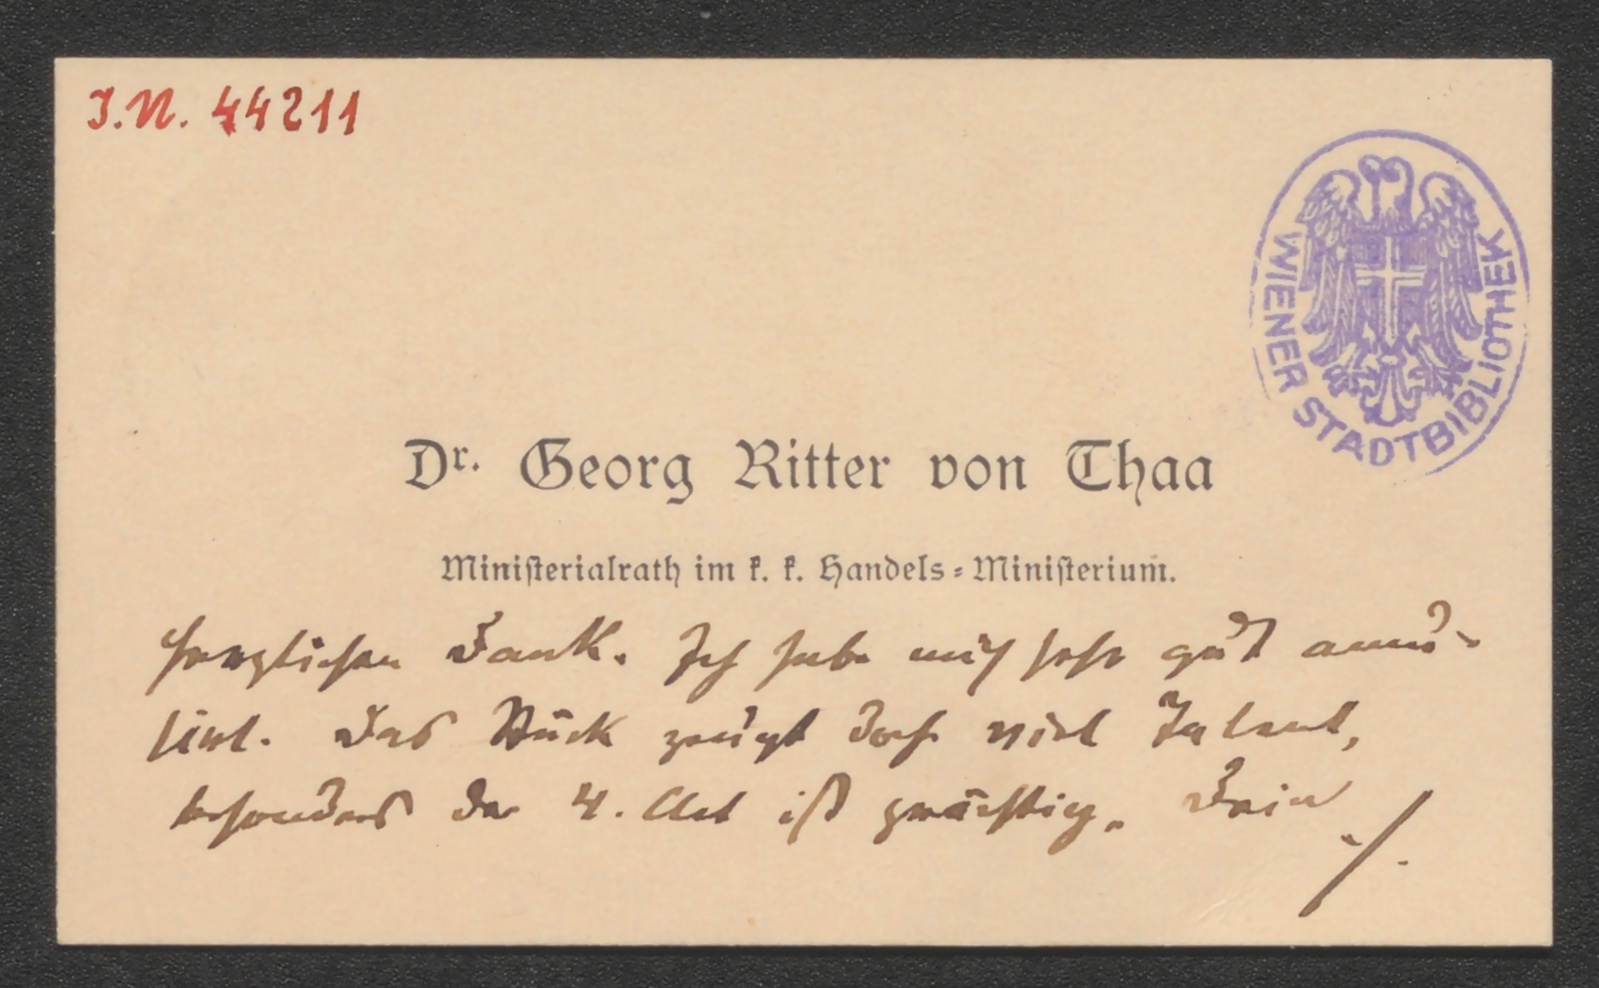 I.N. 44211
WIENER STADTBIBLIOTHEK
Dr. Georg Ritter von Thaa
Ministerialrath im k. k. Handels-Ministerium.
herzlichen Dank. Ich habe mich sehr gut amü-
sirt. Das Stück zeugt doch viel Talent,
besonders der 4. Act ist prächtig. Dein
./.